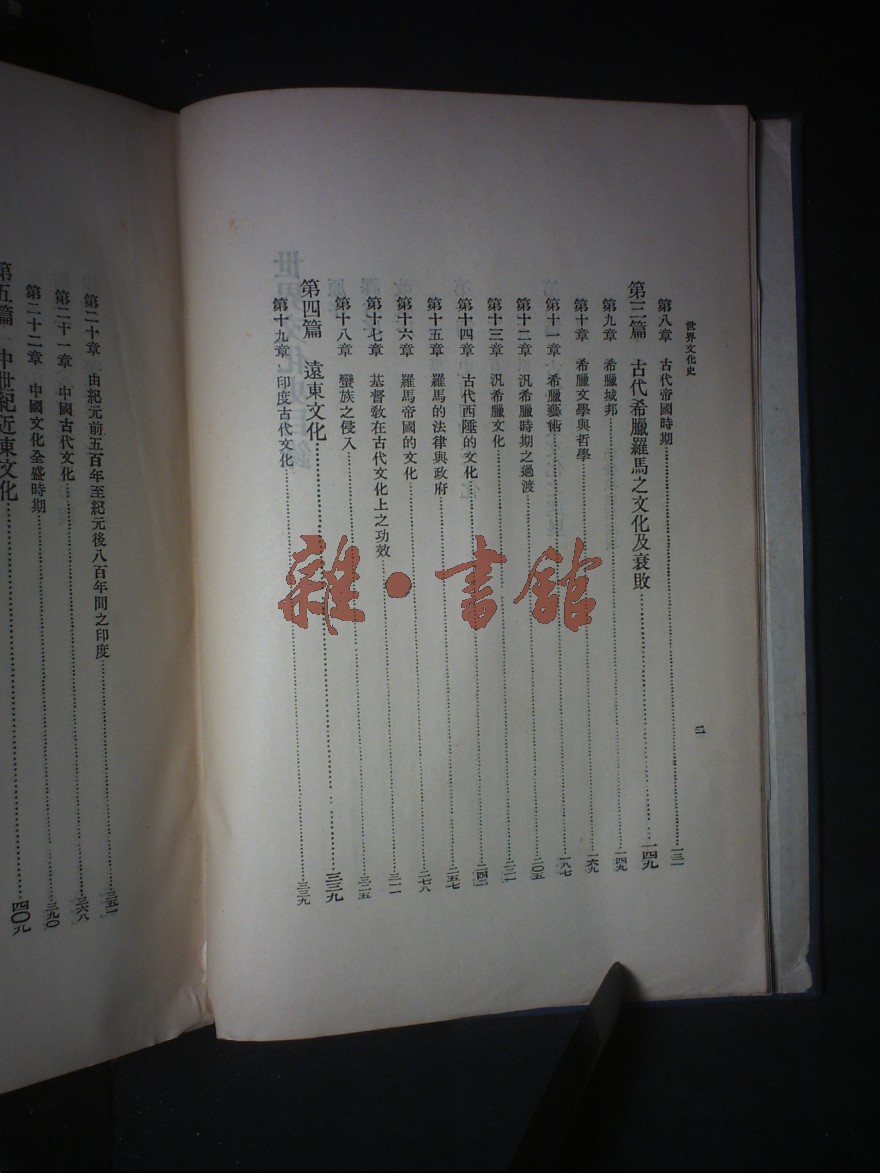 世界文化史
第八章 古代帝國時期……一三一
第三篇 古代希臘羅馬之文化及衰敗……一四九
第九章 希臘城邦……一四九
第十章 希臘文學與哲學……一六九
第十一章 希臘藝術……一八七
第十二章 汎希臘時期之過渡……二〇五
第十三章 汎希臘文化……二二一
第十四章 古代西陲的文化……二四二
第十五章 羅馬的法律與政府……二五七
第十六章 羅馬帝國的文化……二七八
第十七章 基督教在古代文化上之功效……三一一
第十八章 蠻族之侵入……三二五
第四篇 遠東文化……三三九
第十九章 印度古代文化……三三九
二
第二十章 由紀元前五百年至紀元後八百年間之印度……三五一
第二十一章 中國古代文化……三六八
第二十二章 中國文化全盛時期……三九〇
第五篇 中世紀近東文化……四〇九
雜·書館